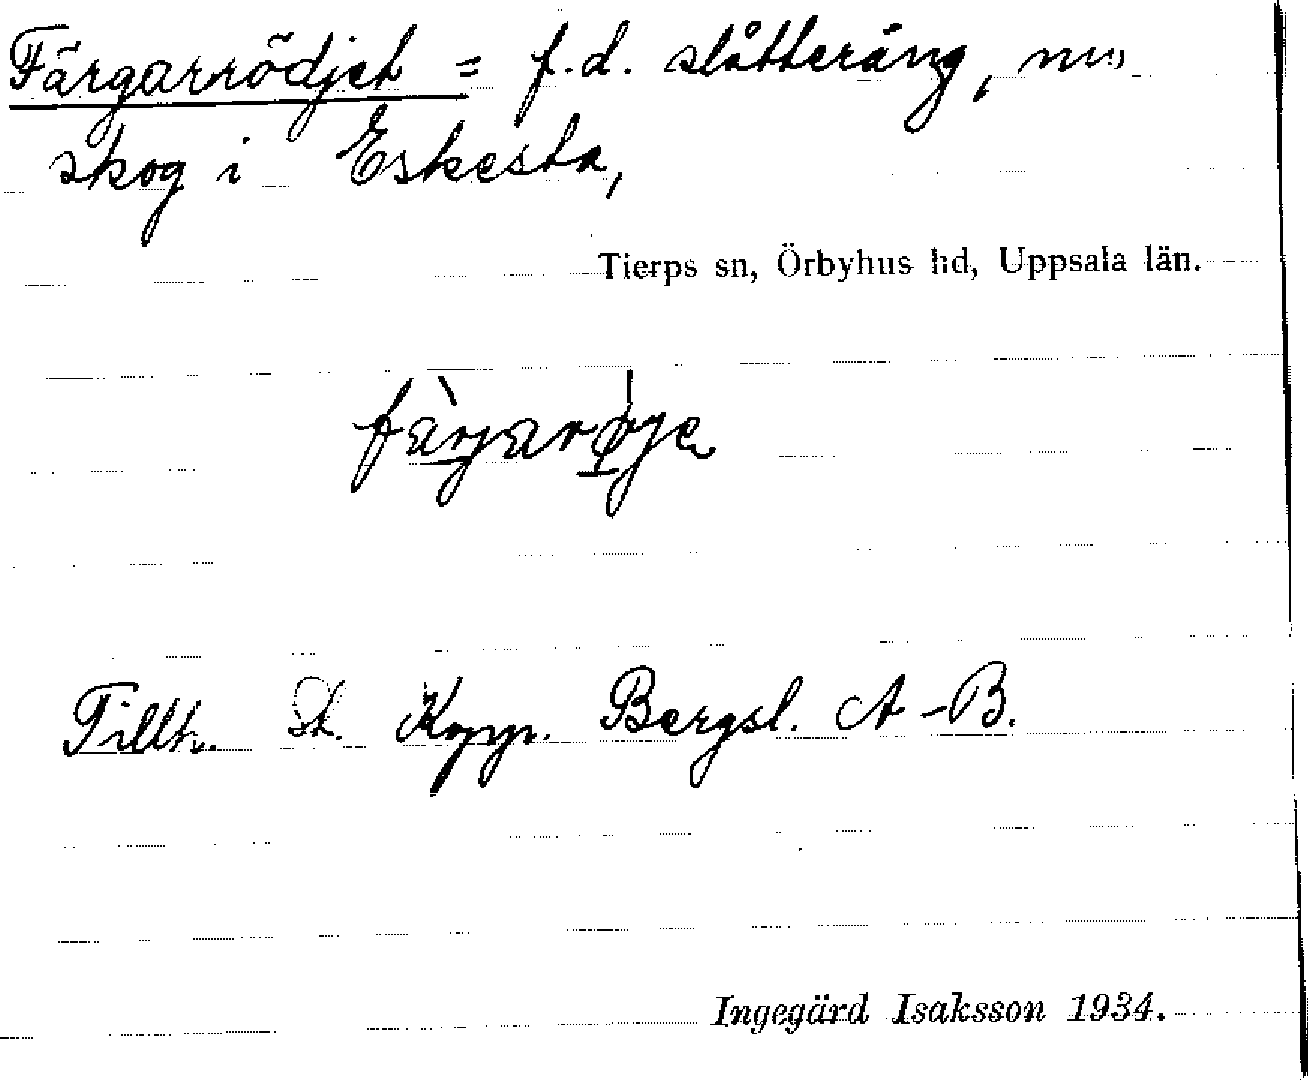 Färgarrödjet = f.d. slåtteräng, nu
skog i Eskesta,
Tierps sn, Örbyhus hd, Uppsala län.
Tillh. St. Kopp. Bergsl. A-B.
Ingegärd Isaksson 1934.